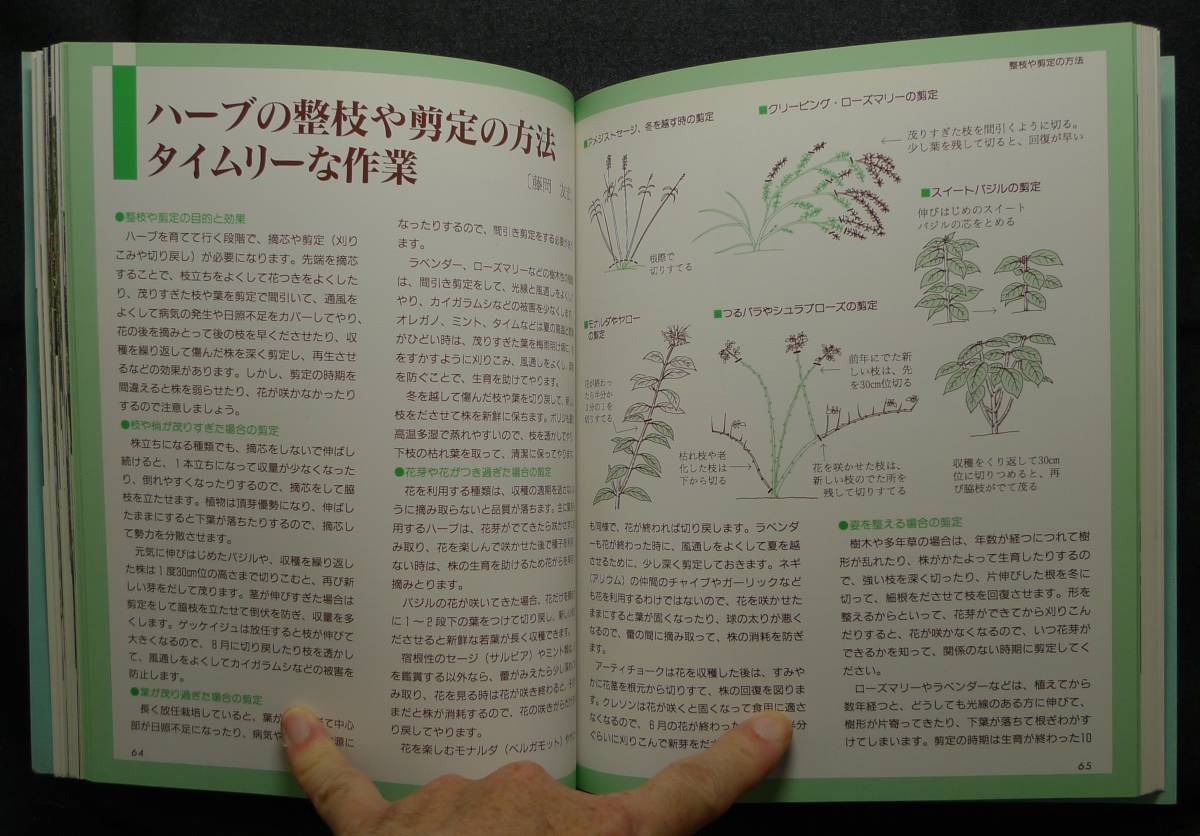 ハーブの整枝や剪定の方法
タイムリーな作業
〔藤岡 友
●整枝や剪定の目的と効果
ハーブを育てて行く段階で、摘芯や剪定（刈り
こみや切り戻し）が必要になります。先端を摘芯
することで、枝立ちをよくして花つきをよくした
り、茂りすぎた枝や葉を剪定で間引いて、通風を
よくして病気の発生や日照不足をカバーしてやり、
花の後を摘みとって後の枝を早くださせたり、収
穫を繰り返して傷んだ株を深く剪定し、再生させ
るなどの効果があります。しかし、剪定の時期を
間違えると株を弱らせたり、花が咲かなかったり
するので注意しましょう。
●枝や梢が茂りすぎた場合の剪定
株立ちになる種類でも、摘芯をしないで伸ばし
続けると、1本立ちになって収量が少なくなった
り、倒れやすくなったりするので、摘芯をして脇
枝を立たせます。植物は頂芽優勢になり、伸ばし
たままにすると下葉が落ちたりするので、摘芯し
て勢力を分散させます。
元気に伸びはじめたバジルや、収穫を繰り返し
た株は1度30cm位の高さまで切りこむと、再び新
しい芽をだして茂ります。茎が伸びすぎた場合は
剪定をして脇枝を立たせて倒伏を防ぎ、収量を多
くします。ゲッケイジュは放任すると枝が伸びて
大きくなるので、8月に切り戻したり枝を透かし
て、風通しをよくしてカイガラムシなどの被害を
防止します。
●葉が茂り過ぎた場合の剪定
長く放任栽培していると、葉が
て中心
部が日照不足になったり、病気や
源に
64
なったりするので、間引き剪定をする必要があり
ます。
ラベンダー、ローズマリーなどの樹木性の
は、間引き剪定をして、光線と風通しをよくして
やり、カイガラムシなどの被害を少なくします。
オレガノ、ミント、タイムなどは夏の高温と
がひどい時は、茂りすぎた葉を梅雨明け前に、
をすかすように刈りこみ、風通しをよくし、
を防ぐことで、生育を助けてやります。
冬を越して傷んだ枝や葉を切り戻して、新しい
枝をださせて株を新鮮に保ちます。ポリジも
高温多湿で蒸れやすいので、枝を透かしてやり
下枝の枯れ葉を取って、清潔に保ってやります。
●花芽や花がつき過ぎた場合の剪定
花を利用する種類は、収穫の適期を逃さない
うに摘み取らないと品質が落ちます。主に葉を
用するハーブは、花芽がでてきたら咲かさずに
み取り、花を楽しんで咲かせた後で種子を利
ない時は、株の生育を助けるため花がらを
摘みとります。
バジルの花が咲いてきた場合、花だけを
に1〜2段下の葉をつけて切り戻し、新しい
ださせると新鮮な若葉が長く収穫できます。
宿根性のセージ（サルビア）やミント類は
を鑑賞する以外なら、蕾がみえたら少し深
み取り、花を見る時は花が咲き終わると、
まだと株が消耗するので、花の咲きがら
り戻してやります。
花を楽しむモナルダ（ベルガモット）や
整枝や剪定の方法
■アメジストセージ、冬を越す時の剪定
根際で
切りすてる
■クリーピング・ローズマリーの剪定
茂りすぎた枝を間引くように切る。
少し葉を残して切ると、回復が早い
■スイートバジルの剪定
伸びはじめのスイート
バジルの芯をとめる
■モナルダやヤロー
の剪定
花が終わっ
たら半分か
3分の1を
切りすてる
■つるバラやシュラブローズの剪定
前年にでた新
しい枝は、先
を30cm位切る
枯れ枝や老
化した枝は
下から切る
花を咲かせた枝は、
新しい枝のでた所を
残して切りすてる
収穫をくり返して30cm
位に切りつめると、再
び脇枝がでて茂る
も同様で、花が終われば切り戻します。ラベンダ
ーも花が終わった時に、風通しをよくして夏を越
させるために、少し深く剪定しておきます。ネギ
（アリウム）の仲間のチャイブやガーリックなど
も花を利用するわけではないので、花を咲かせた
ままにすると葉が固くなったり、球の太りが悪く
なるので、蕾の間に摘み取って、株の消耗を防ぎ
ます。
アーティチョークは花を収穫した後は、すみや
かに花茎を根元から切りすて、株の回復を図りま
す。クレソンは花が咲くと固くなって食用に適さ
なくなるので、6月の花が終わった
半分
ぐらいに刈りこんで新芽をださ
●姿を整える場合の剪定
樹木や多年草の場合は、年数が経つにつれて樹
形が乱れたり、株がかたよって生育したりするの
で、強い枝を深く切ったり、片伸びした根を冬に
切って、細根をださせて枝を回復させます。形を
整えるからといって、花芽ができてから刈りこん
だりすると、花が咲かなくなるので、いつ花芽が
できるかを知って、関係のない時期に剪定してく
ださい。
ローズマリーやラベンダーなどは、植えてから
数年経つと、どうしても光線のある方に伸びて、
樹形が片寄ってきたり、下葉が落ちて根ぎわがす
けてしまいます。剪定の時期は生育が終わった10
65